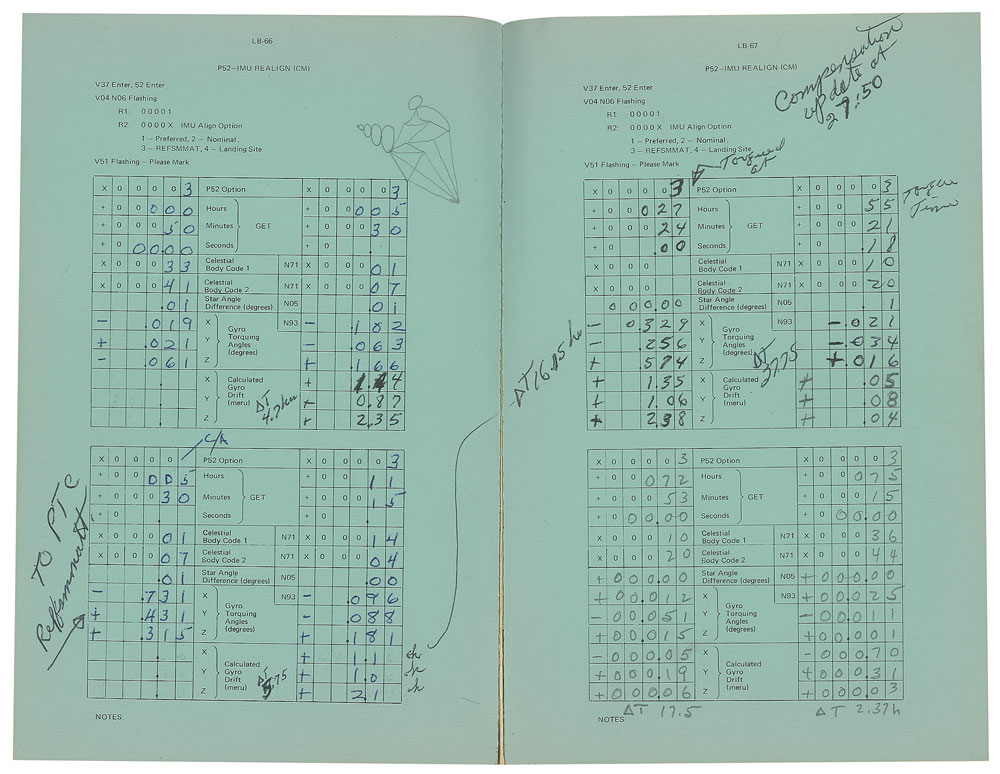 LB-66
P52–IMU REALIGN (CM)
V37 Enter, 52 Enter
V04 N06 Flashing
R1: 0 0 0 0 1
R2: 0 0 0 0 X IMU Align Option
1 – Preferred, 2 – Nominal,
3 – REFSMMAT, 4 – Landing Site
V51 Flashing – Please Mark
X 0 0 0 0 3 P52 Option X 0 0 0 0 3
+ 0 0 0 0 0 Hours + 0 0 0 0 5
+ 0 0 0 5 0 Minutes GET + 0 0 0 3 0
+ 0 0 0 0 0 Seconds + 0
X 0 0 0 3 3 Celestial Body Code 1 N71 X 0 0 0 0 1
X 0 0 0 4 1 Celestial Body Code 2 N71 X 0 0 0 0 7
.0 1 Star Angle Difference (degrees) N05 .0 1
– .0 1 9 X Gyro Torquing Angles (degrees) N93 – .1 0 2
+ .0 2 1 Y – .0 6 3
– .0 6 1 Z + .1 6 6
X Calculated Gyro Drift (meru) +
Y ΔT 4.7 hr + 0.8 7
Z + 2.3 5
C/h
TO PTC
X 0 0 0 0 P52 Option X 0 0 0 0 3
+ 0 0 0 5 Hours + 0 1 1
+ 0 0 0 3 0 Minutes GET + 0 0 0 1 5
+ 0 Seconds + 0
X 0 0 0 0 1 Celestial Body Code 1 N71 X 0 0 0 1 4
X 0 0 0 0 7 Celestial Body Code 2 N71 X 0 0 0 0 4
.0 1 Star Angle Difference (degrees) N05 .0 0
– .7 3 1 X Gyro Torquing Angles (degrees) N93 – .0 9 6
+ .4 3 1 Y – .0 8 8
+ .3 1 5 Z + .1 8 1
X Calculated Gyro Drift (meru) + 1.1
Y ΔT 5.75 + 1.0
Z + 2.1
NOTES:
LB-67
P52–IMU REALIGN (CM)
Compensation
update at
27:50
V37 Enter, 52 Enter
V04 N06 Flashing
R1: 0 0 0 0 1
R2: 0 0 0 0 X IMU Align Option
1 – Preferred, 2 – Nominal,
3 – REFSMMAT, 4 – Landing Site
V51 Flashing – Please Mark
Torqued at
Torque Time
X 0 0 0 0 3 P52 Option X 0 0 0 0 3
+ 0 0 0 2 7 Hours + 0 0 5 5
+ 0 0 0 2 4 Minutes GET + 0 0 0 2 1
+ 0 .0 0 Seconds + 0 .1 8
X 0 0 0 Celestial Body Code 1 N71 X 0 0 0 1 0
X 0 0 0 Celestial Body Code 2 N71 X 0 0 0 2 0
0 0 0.0 0 Star Angle Difference (degrees) N05 . 1
– 0.3 2 9 X Gyro Torquing Angles (degrees) N93 – .0 2 1
– .2 5 6 Y – .0 3 4
+ .5 7 4 Z + .0 1 6
+ 1.3 5 X Calculated Gyro Drift (meru) + .0 5
+ 1.0 6 Y + .0 8
+ 2.3 8 Z + .0 4
ΔT 16.15 hr
ΔT 27.75
X 0 0 0 0 3 P52 Option X 0 0 0 0 3
+ 0 0 0 7 2 Hours + 0 0 0 7 5
+ 0 0 0 5 3 Minutes GET + 0 0 0 1 5
+ 0 0 0.0 0 Seconds + 0 0 0.0 0
X 0 0 0 1 0 Celestial Body Code 1 N71 X 0 0 0 3 6
X 0 0 0 2 0 Celestial Body Code 2 N71 X 0 0 0 4 4
+ 0 0 0.0 0 Star Angle Difference (degrees) N05 + 0 0 0.0 0
+ 0 0.0 1 2 X Gyro Torquing Angles (degrees) N93 + 0 0.0 2 5
– 0 0.0 5 1 Y – 0 0.0 1 1
+ 0 0.0 1 5 Z + 0 0.0 0 1
– 0 0 0.0 5 X Calculated Gyro Drift (meru) – 0 0 0.7 0
+ 0 0 0.1 9 Y + 0 0 0.3 1
+ 0 0 0.0 6 Z + 0 0 0.0 3
ΔT 17.5 ΔT 2.37h
NOTES: